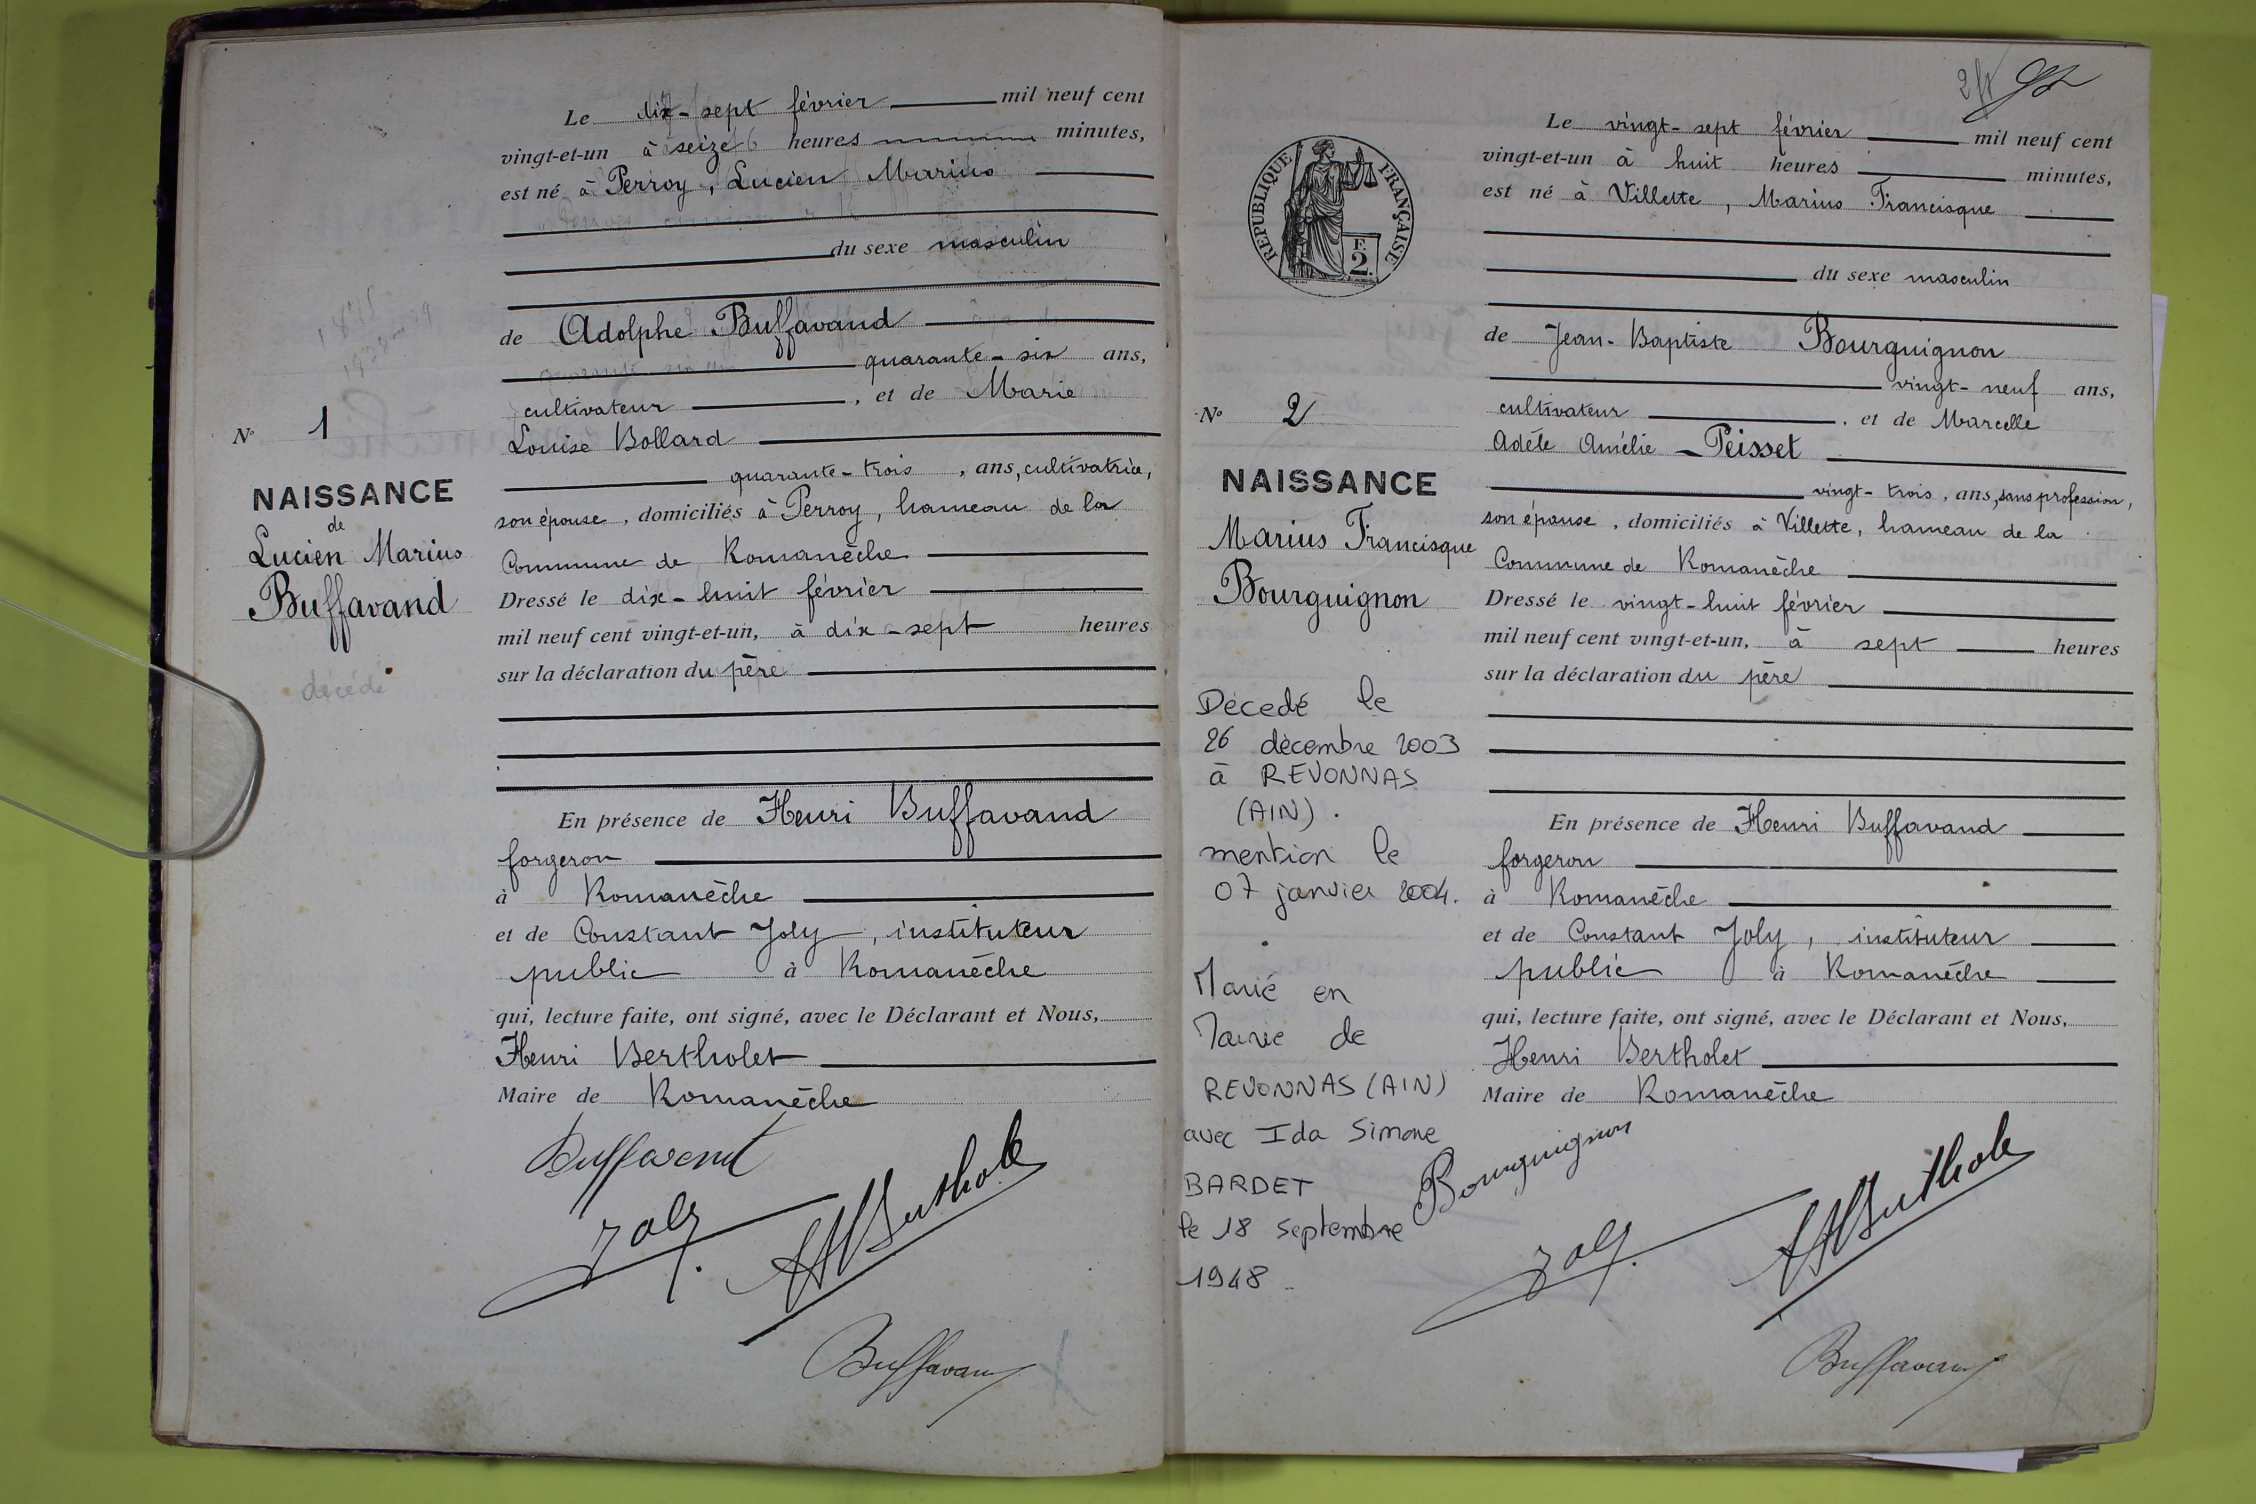 Le dix-sept février mil neuf cent
vingt-et-un à seize heures minutes,
est né à Perroy, Lucien Marius
du sexe masculin
de Adolphe Buffavand
quarante-six ans,
cultivateur, et de Marie
Louise Bollard
quarante-trois, ans, cultivatrice,
son épouse, domiciliés à Perroy, hameau de la
Commune de Romanèche
Dressé le dix-huit février
mil neuf cent vingt-et-un, à dix-sept heures
sur la déclaration du père
En présence de Henri Buffavand
forgeron
à Romanèche
et de Constant Joly, instituteur
public à Romanèche
qui, lecture faite, ont signé, avec le Déclarant et Nous,
Henri Bertholet
Maire de Romanèche
Buffavand
Joly
HBerthole
Buffavand
No 1
NAISSANCE
de
Lucien Marius
Buffavand
décédé
RÉPUBLIQUE FRANÇAISE
F.
2.
No 2
NAISSANCE
Marius Francisque
Bourguignon
Décedé le
26 décembre 2003
à REVONNAS
(AIN).
mention le
07 janvier 2004.
Marié en
Mairie de
REVONNAS (AIN)
avec Ida Simone
BARDET
le 18 septembre
1948
Le vingt-sept février mil neuf cent
vingt-et-un à huit heures minutes,
est né à Villette, Marius Francisque
du sexe masculin
de Jean-Baptiste Bourguignon
vingt-neuf ans,
cultivateur, et de Marcelle
Adèle Amélie Peisset
vingt-trois, ans, sans profession,
son épouse, domiciliés à Villette, hameau de la
Commune de Romanèche
Dressé le vingt-huit février
mil neuf cent vingt-et-un, à sept heures
sur la déclaration du père
En présence de Henri Buffavand
forgeron
à Romanèche
et de Constant Joly, instituteur
public à Romanèche
qui, lecture faite, ont signé, avec le Déclarant et Nous,
Henri Bertholet
Maire de Romanèche
Bourguignon
Joly
HBerthole
Buffavand